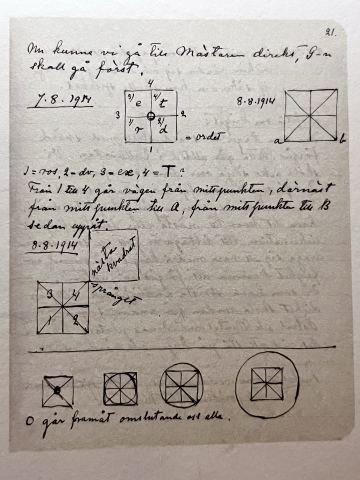 21.
Nu kunna vi gå till Mästaren direkt, G-n
skall gå först.
7.8.1914
4
3/ e 4/ t
3 2
1/ r 2/ d
1
= ordet
8.8.1914
a b
1 = ros, 2 = dv, 3 = ex, 4 = T ?
Från 1 till 4 går vägen från mittpunkten, därnäst
från mittpunkten till A, från mittpunkten till B
sedan uppåt.
8.8.1914
nästa
kvadrat
språnget
3 4
1 2
O går framåt omslutande oss alla.